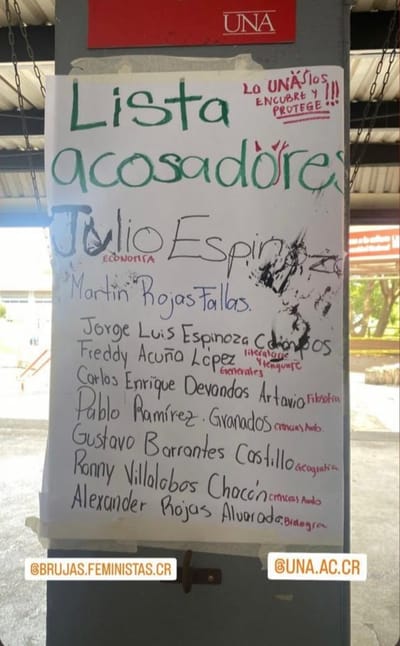 UNA
Lista
La UNA los
ENCUBRE Y
PROTEGE!!!
acosadores
Julio Espinoza
ECONOMÍA
Martin Rojas Fallas.
Jorge Luis Espinoza Campos
literatura
Freddy Acuña López y lenguaje
Generales
Carlos Enrique Devandas Artavio Filosofia
Pablo Ramírez. Granados ciencias Amb.
Gustavo Barrantes Castillo Geografia
Ronny Villalobos Chacón ciencias Amb
Alexander Rojas Alvarado. Biología
@BRUJAS.FEMINISTAS.CR
@UNA.AC.CR